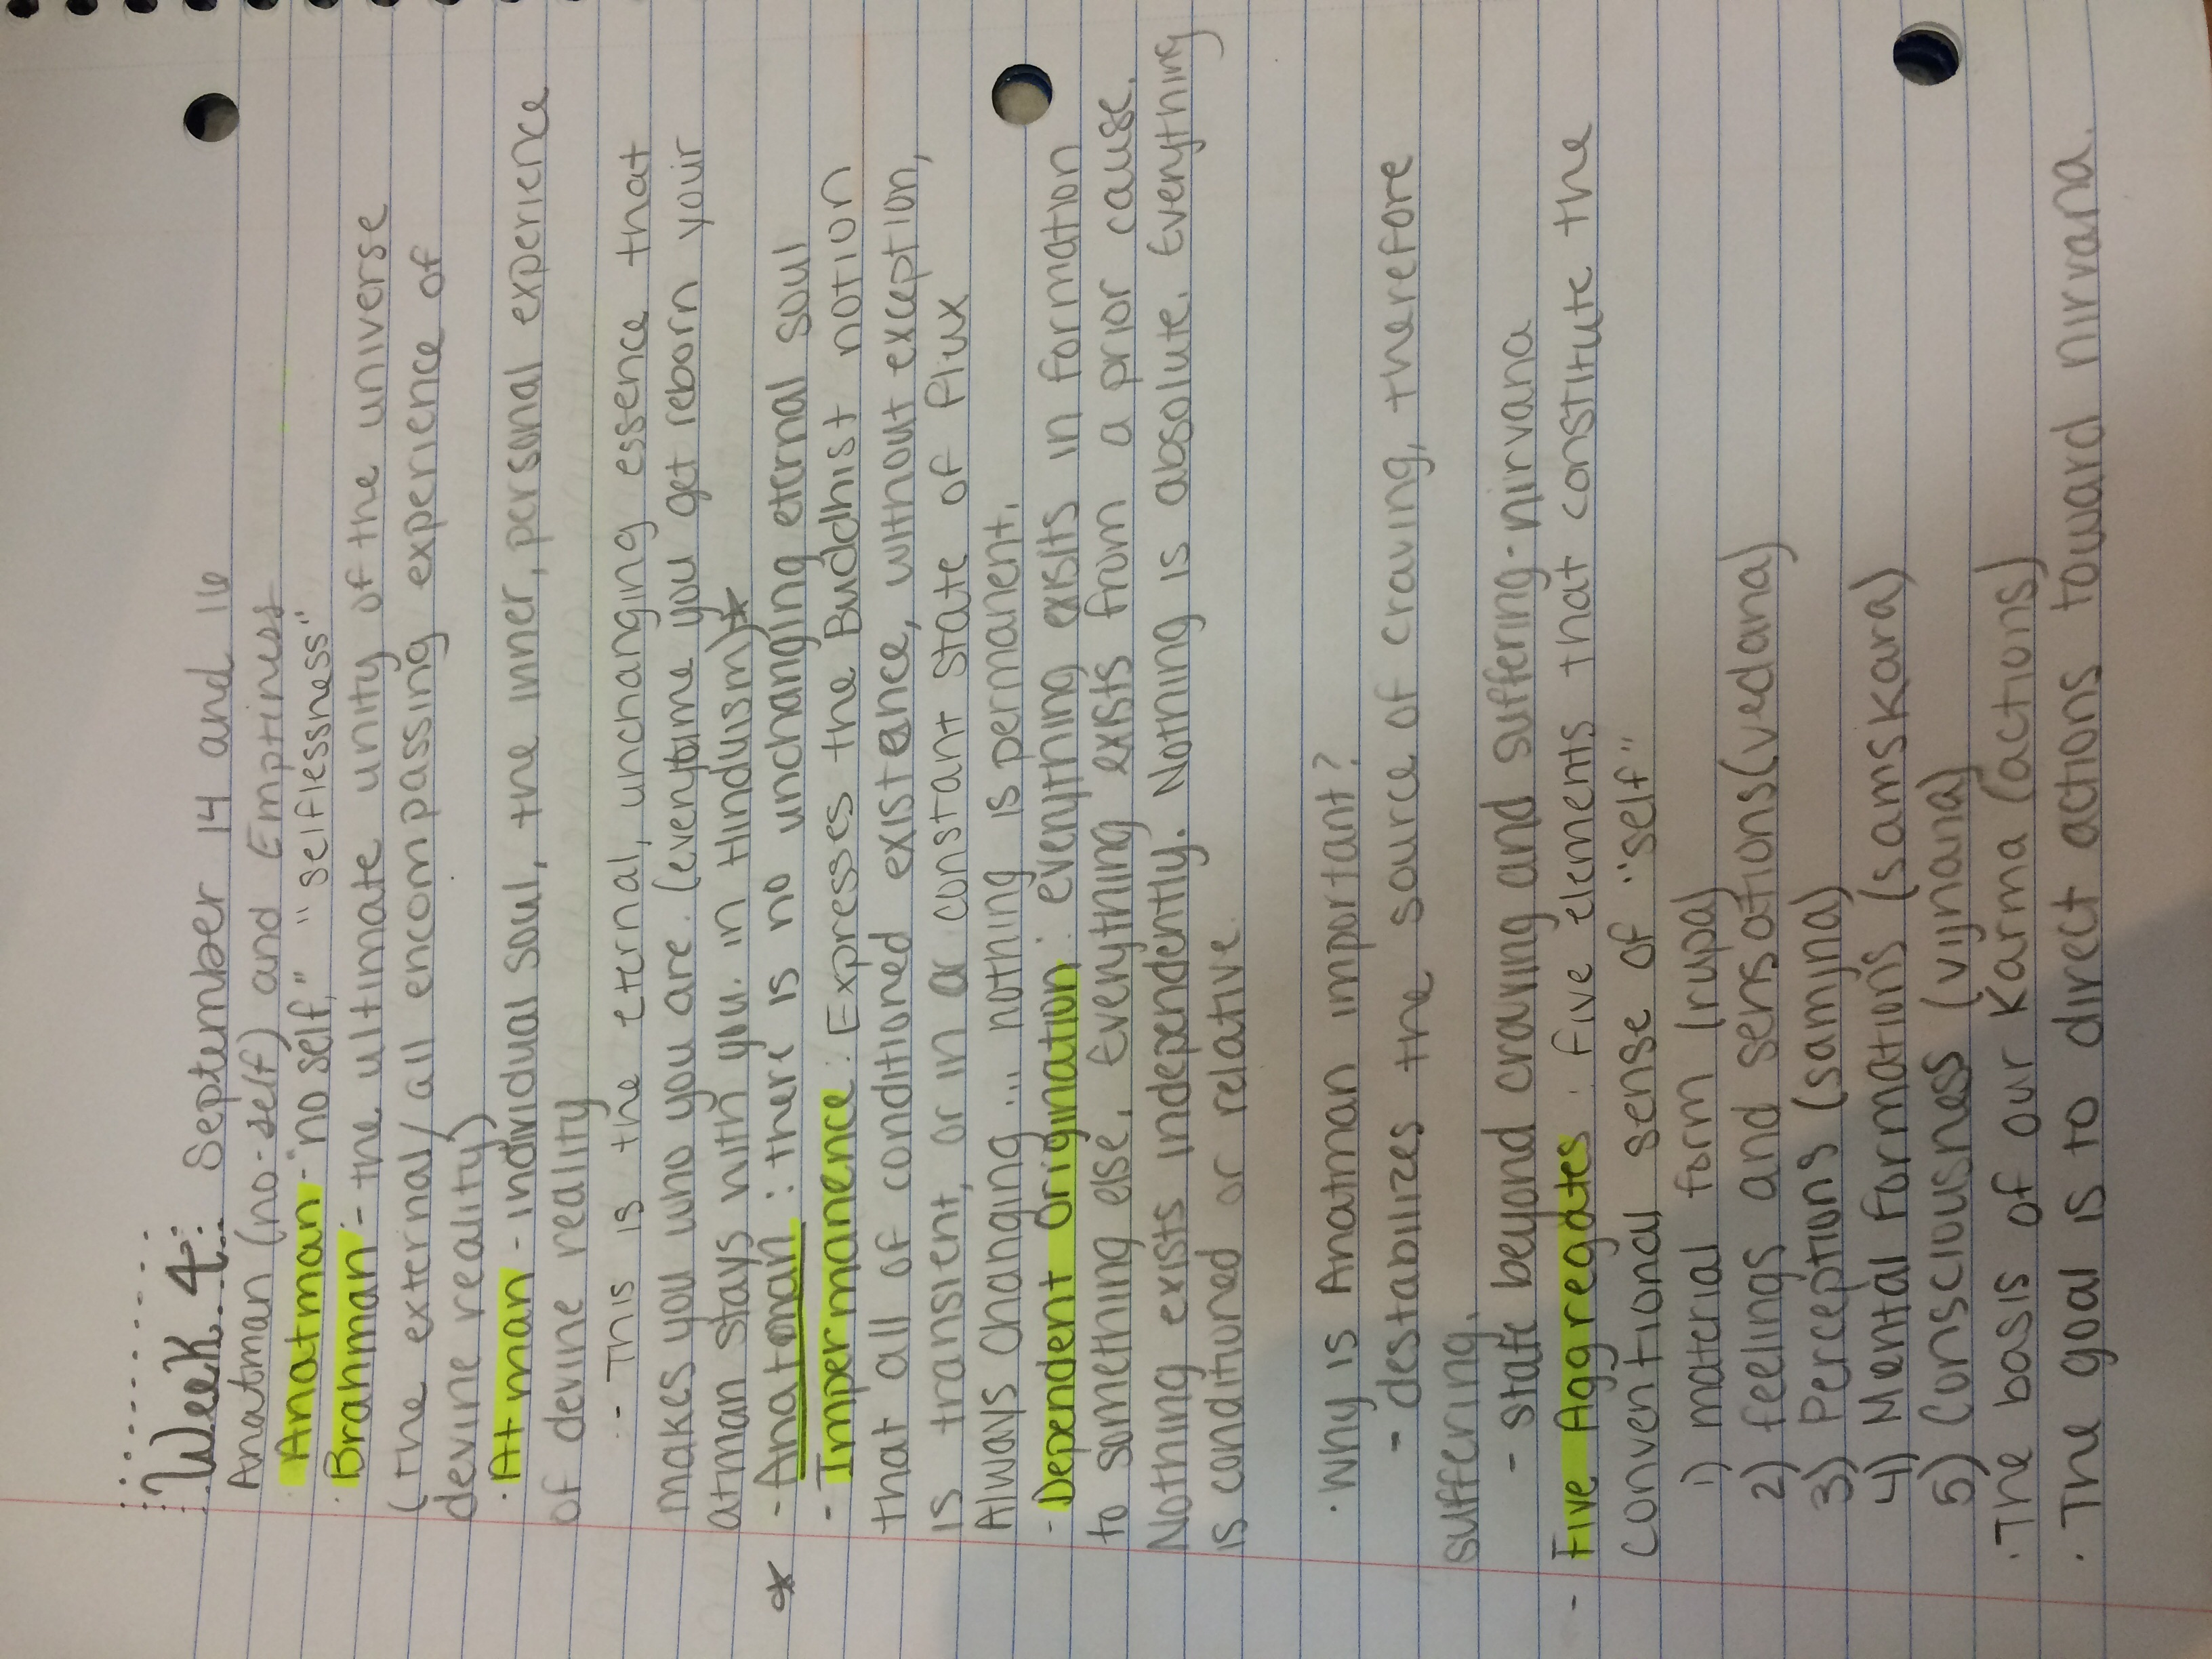 Week 4: September 14 and 16
Anatman (no-self) and Emptiness
· Anatman - "no self," "selflessness"
· Brahman - the ultimate unity of the universe
(the external/all encompassing experience of
devine reality)
· Atman - individual soul, the inner, personal experience
of devine reality
- This is the eternal, unchanging essence that
makes you who you are. (everytime you get reborn your
atman stays with you. in Hinduism)*
* - Anatman: there is no unchanging eternal soul
- Impermanence: Expresses the Buddhist notion
that all of conditioned existance, without exception,
is transient, or in a constant state of flux
Always changing... nothing is permanent.
- Dependent Origination: everything exists in formation
to something else. Everything exists from a prior cause.
Nothing exists independently. Nothing is absolute. Everything
is conditioned or relative.
· Why is Anatman important?
- destabilizes the source of craving, therefore
suffering.
- state beyond craving and suffering-nirvana
- Five Aggregates: five elements that constitute the
conventional sense of "self"
1) material form (rupa)
2) feelings and sensations (vedana)
3) Perceptions (samjna)
4) Mental formations (samskara)
5) Consciousness (vijnana)
· The basis of our Karma (actions)
· The goal is to direct actions toward nirvana.